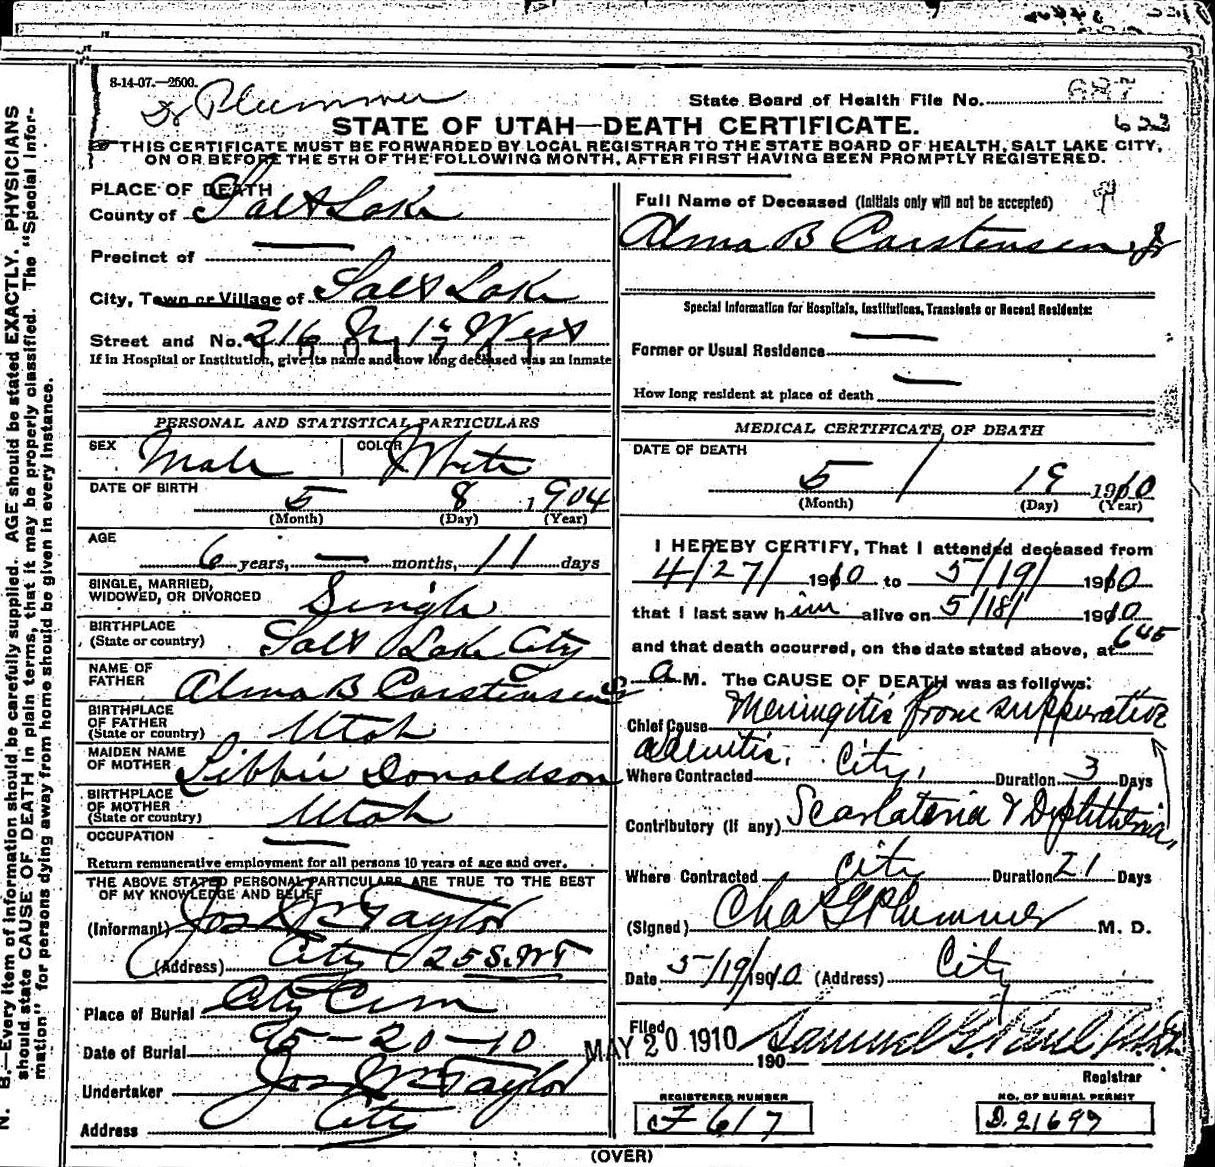 8-14-07.—2500.
Dr Plummer
State Board of Health File No. 687
622
STATE OF UTAH—DEATH CERTIFICATE.
THIS CERTIFICATE MUST BE FORWARDED BY LOCAL REGISTRAR TO THE STATE BOARD OF HEALTH, SALT LAKE CITY,
ON OR BEFORE THE 5TH OF THE FOLLOWING MONTH, AFTER FIRST HAVING BEEN PROMPTLY REGISTERED.
N. B.—Every item of information should be carefully supplied. AGE should be stated EXACTLY. PHYSICIANS
should state CAUSE OF DEATH in plain terms, that it may be properly classified. The "Special Infor-
mation" for persons dying away from home should be given in every instance.
PLACE OF DEATH
County of Salt Lake
Precinct of —
City, Town or Village of Salt Lake
Street and No. 216 N 1st West
If in Hospital or Institution, give its name and how long deceased was an inmate
PERSONAL AND STATISTICAL PARTICULARS
SEX Male COLOR White
DATE OF BIRTH 5 8 1904
(Month) (Day) (Year)
AGE 6 years, — months, 11 days
SINGLE, MARRIED,
WIDOWED, OR DIVORCED Single
BIRTHPLACE
(State or country) Salt Lake City
NAME OF
FATHER Alma B Carstensen Sr
BIRTHPLACE
OF FATHER
(State or country) Utah
MAIDEN NAME
OF MOTHER Libbie Donaldson
BIRTHPLACE
OF MOTHER
(State or country) Utah
OCCUPATION —
Return remunerative employment for all persons 10 years of age and over.
THE ABOVE STATED PERSONAL PARTICULARS ARE TRUE TO THE BEST
OF MY KNOWLEDGE AND BELIEF
(Informant) Jos Wm Taylor
(Address) City 25 S. W T
Place of Burial City Cem
Date of Burial 5-20-10
Undertaker Jos Wm Taylor
Address City
Full Name of Deceased (Initials only will not be accepted)
Alma B Carstensen Jr
Special Information for Hospitals, Institutions, Transients or Recent Residents:
Former or Usual Residence —
How long resident at place of death —
MEDICAL CERTIFICATE OF DEATH
DATE OF DEATH
5 / 19 1910
(Month) (Day) (Year)
I HEREBY CERTIFY, That I attended deceased from
4/27/ 1910 to 5/19/ 1910
that I last saw him alive on 5/18/ 1910
and that death occurred, on the date stated above, at 645
a M. The CAUSE OF DEATH was as follows:
Chief Cause Meningitis from suppurative
adenitis.
Where Contracted City, Duration 3 Days
Contributory (if any) Scarlatina & Diphtheria,
Where Contracted City Duration 21 Days
(Signed) Chas G Plummer M. D.
Date 5/19/1910 (Address) City
Filed MAY 20 1910 190 Samuel G. Paul M.D.
Registrar
REGISTERED NUMBER
F 617
NO. OF BURIAL PERMIT
D. 21699
(OVER)